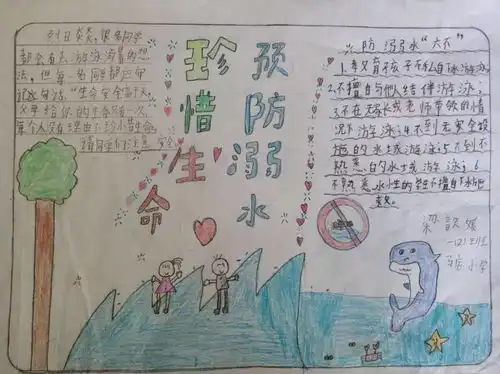 烈日炎炎,很多同学
都会有去游泳消暑的想
法,但每名同学都应牢
记这句话:"生命安全高于天,
父母给你的生命只有一次,
每个人没有理由不珍惜生命
请同学们注意 安全
珍惜生命
预防溺水
防溺水"六不"
1.未又有不孩子不私自下水游泳
2.不擅自与他人结伴游泳;
3.不在无家长或老师带领的情
况下游泳;4不到无安全设
施的水域游泳;5不到不
熟悉的水域游泳;6
不熟悉水性的学生不擅自下水施
救。
梁歆
一(2)班
小学